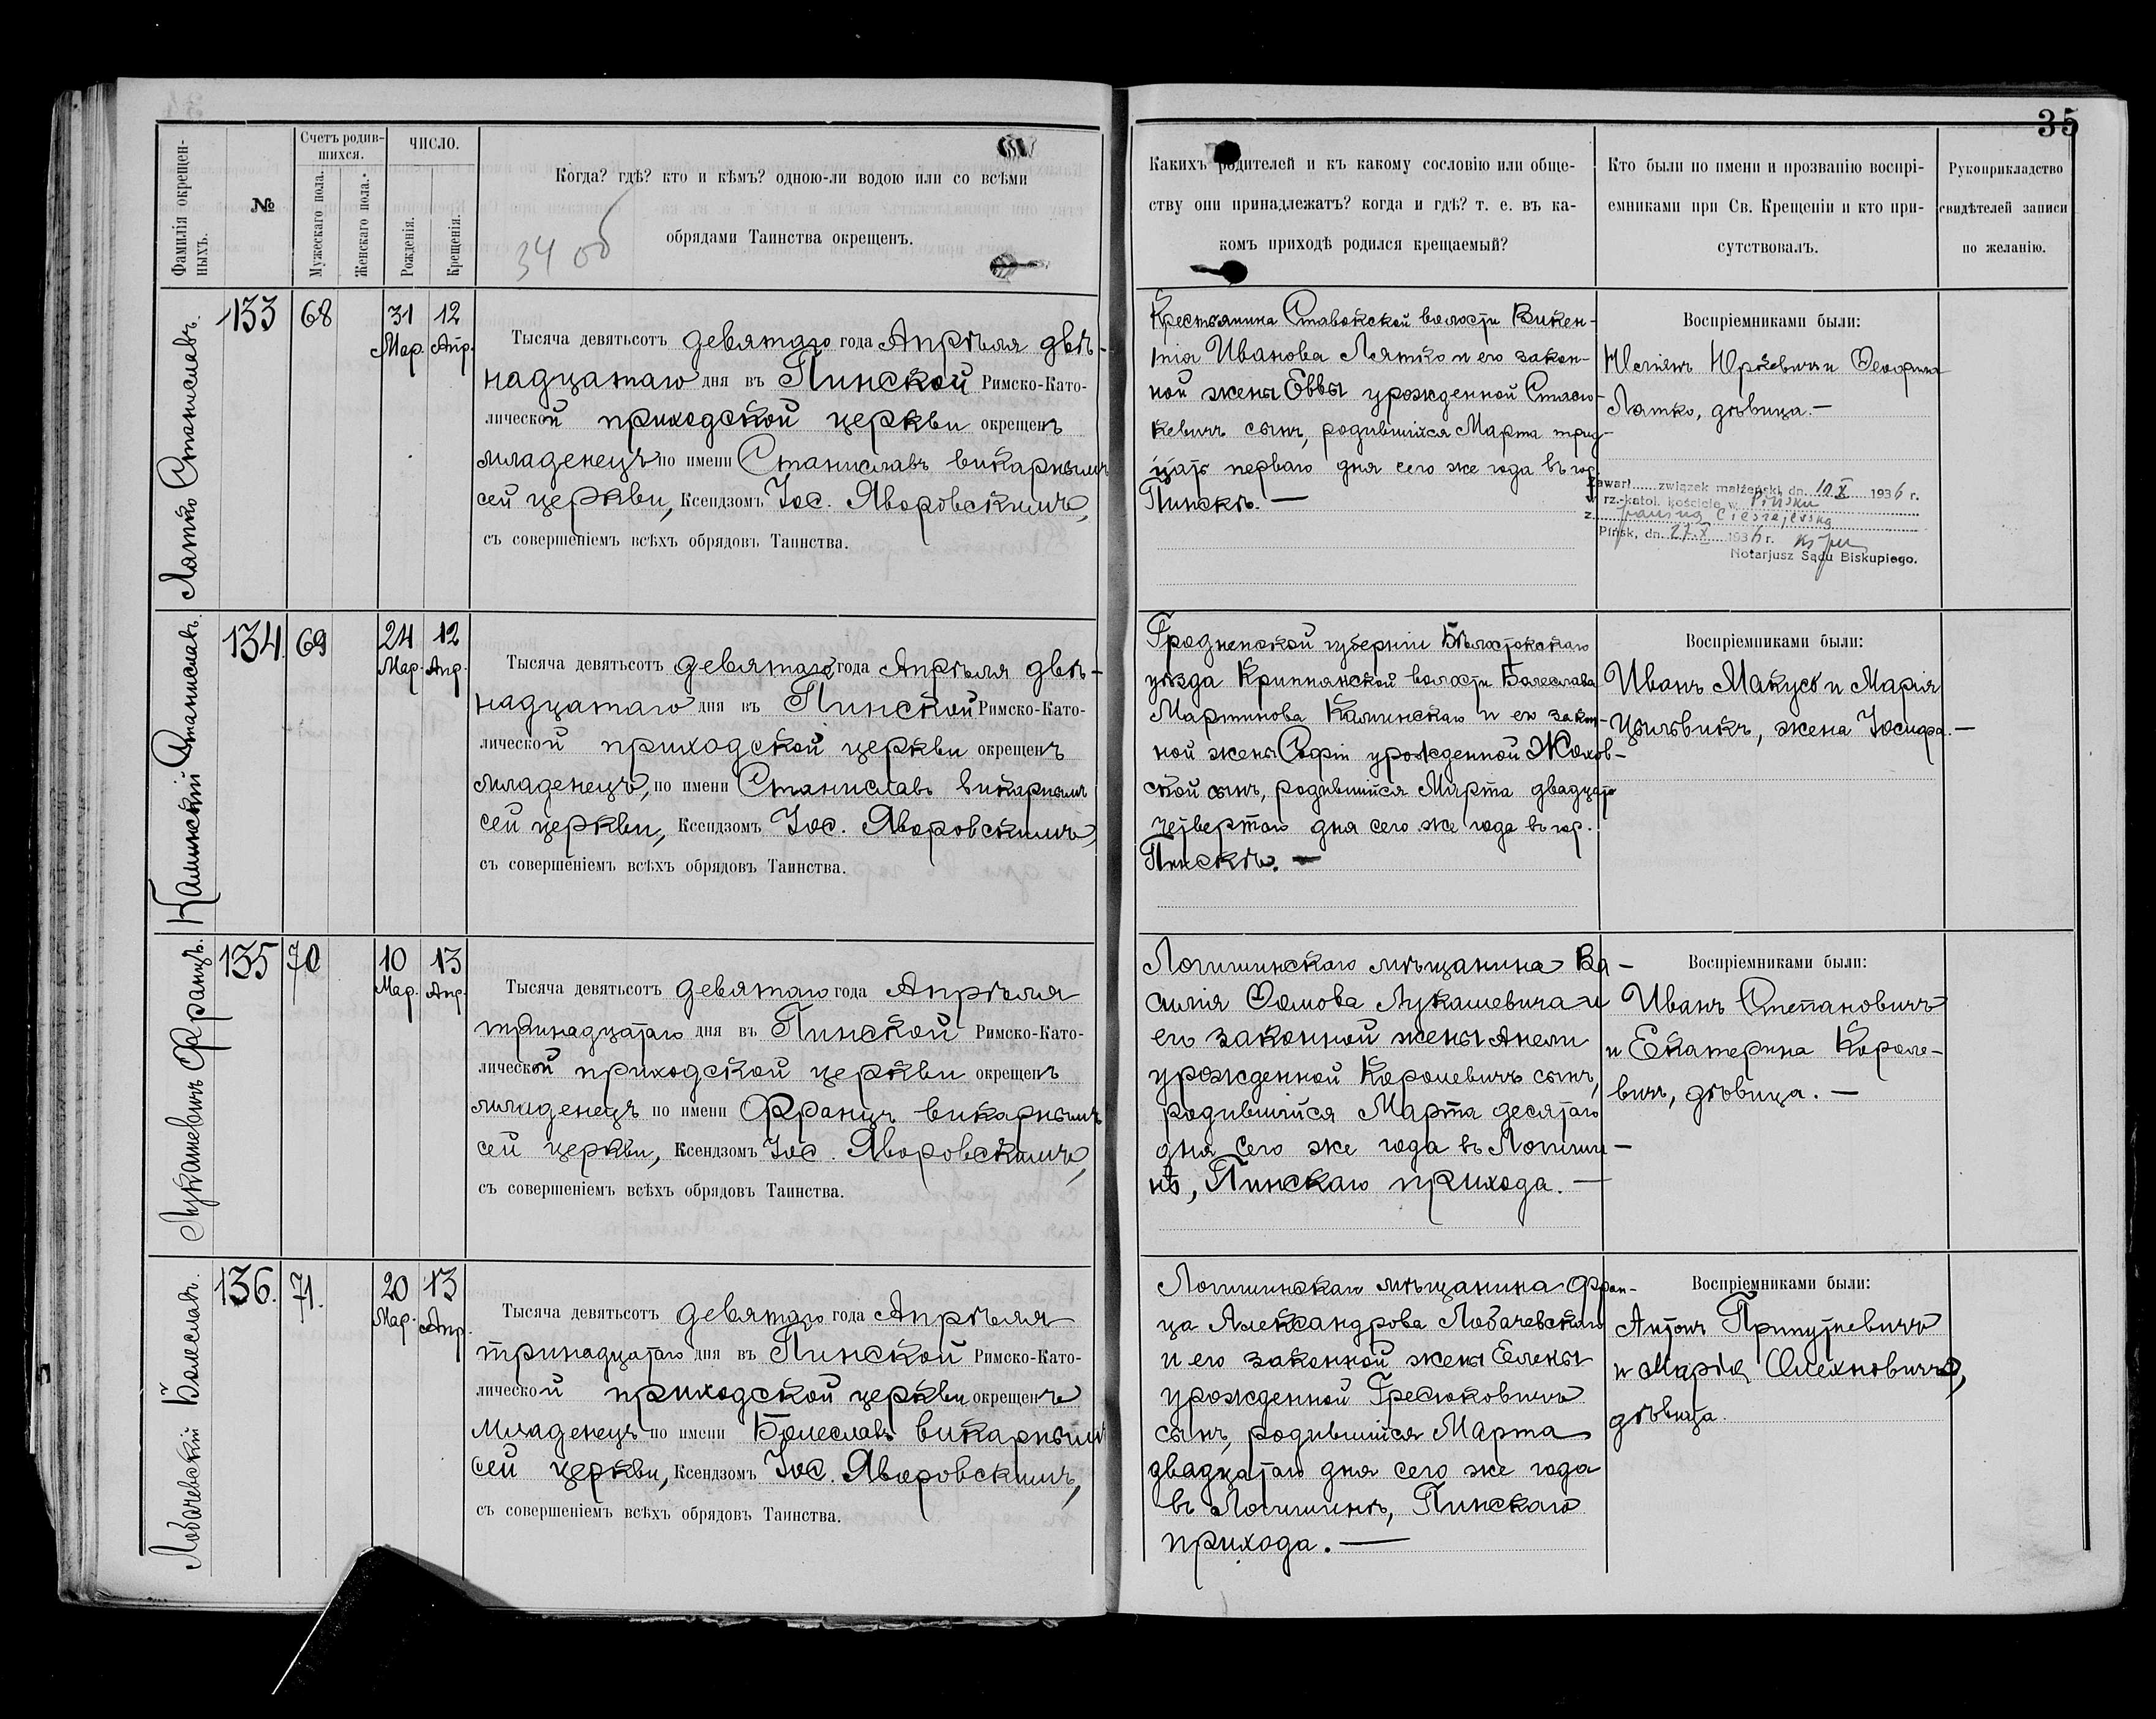 35
Фамилія окрещен-
ныхъ.
№
Счетъ родив-
шихся.
Мужескаго пола.
Женскаго пола.
ЧИСЛО.
Рожденія.
Крещенія.
Когда? гдѣ? кто и кѣмъ? одною-ли водою или со всѣми
обрядами Таинства окрещенъ.
34 об
Какихъ родителей и къ какому сословію или обще-
ству они принадлежатъ? когда и гдѣ? т. е. въ ка-
комъ приходѣ родился крещаемый?
Кто были по имени и прозванію воспрі-
емниками при Св. Крещеніи и кто при-
сутствовалъ.
Рукоприкладство
свидѣтелей записи
по желанію.
Лятко Станиславъ.
133
68
31
Мар.
12
Апр.
Тысяча девятьсотъ девятаго года Апрѣля двѣ-
надцатаго дня въ Пинской Римско-Като-
лической приходской церкви окрещенъ
младенецъ по имени Станиславъ викарнымъ
сей церкви, Ксендзомъ Іос. Яворовскимъ,
съ совершеніемъ всѣхъ обрядовъ Таинства.
Крестьянина Ставокской волости Викен-
тія Иванова Лятко и его закон-
ной жены Еввы урожденной Стась-
кевичъ сынъ, родившійся Марта трид-
цать перваго дня сего же года въ гор.
Пинскѣ. —
Воспріемниками были:
Юркевичъ и
Лятко, дѣвица. —
Zawarł związek małżeński dn. 10 X 1936 r.
w rz.-katol. kościele w Pińsku
z
Pińsk, dn. 27.X 1936 r.
Notarjusz Sądu Biskupiego.
Калинскій Станиславъ.
134.
69
24
Мар.
12
Апр.
Тысяча девятьсотъ девятаго года Апрѣля двѣ-
надцатаго дня въ Пинской Римско-Като-
лической приходской церкви окрещенъ
младенецъ, по имени Станиславъ викарнымъ
сей церкви, Ксендзомъ Іос. Яворовскимъ,
съ совершеніемъ всѣхъ обрядовъ Таинства.
Гродненской губерніи Бѣлостокскаго
уѣзда Крипнянской волости Болеслава
Мартинова Калинскаго и его закон-
ной жены Софіи урожденной Жохов-
ской сынъ, родившійся Марта двадцать
четвертаго дня сего же года въ гор.
Пинскѣ. —
Воспріемниками были:
Иванъ Макусь и Марія
жена Іосифа. —
Лукашевичъ Францъ.
135
70
10
Мар.
13
Апр.
Тысяча девятьсотъ девятаго года Апрѣля
тринадцатаго дня въ Пинской Римско-Като-
лической приходской церкви окрещенъ
младенецъ по имени Францъ викарнымъ
сей церкви, Ксендзомъ Іос. Яворовскимъ,
съ совершеніемъ всѣхъ обрядовъ Таинства.
Логишинскаго мѣщанина Ва-
силія Ѳомова Лукашевича и
его законной жены Анели
урожденной Королевичъ сынъ,
родившійся Марта десятаго
дня сего же года въ Логиши-
нѣ, Пинскаго прихода. —
Воспріемниками были:
Иванъ Степановичъ
и Екатерина Короле-
вичъ, дѣвица. —
Лобачевскій Болеславъ.
136.
71.
20
Мар.
13
Апр.
Тысяча девятьсотъ девятаго года Апрѣля
тринадцатаго дня въ Пинской Римско-Като-
лической приходской церкви окрещенъ
младенецъ по имени Болеславъ викарнымъ
сей церкви, Ксендзомъ Іос. Яворовскимъ,
съ совершеніемъ всѣхъ обрядовъ Таинства.
Логишинскаго мѣщанина Фран-
ца Александрова Лобачевскаго
и его законной жены Елены
урожденной Гресюковичъ
сынъ, родившійся Марта
двадцатаго дня сего же года
въ Логишинѣ, Пинскаго
прихода. —
Воспріемниками были:
Антонъ Припутневичъ
и Марія Олехновичъ,
дѣвица.